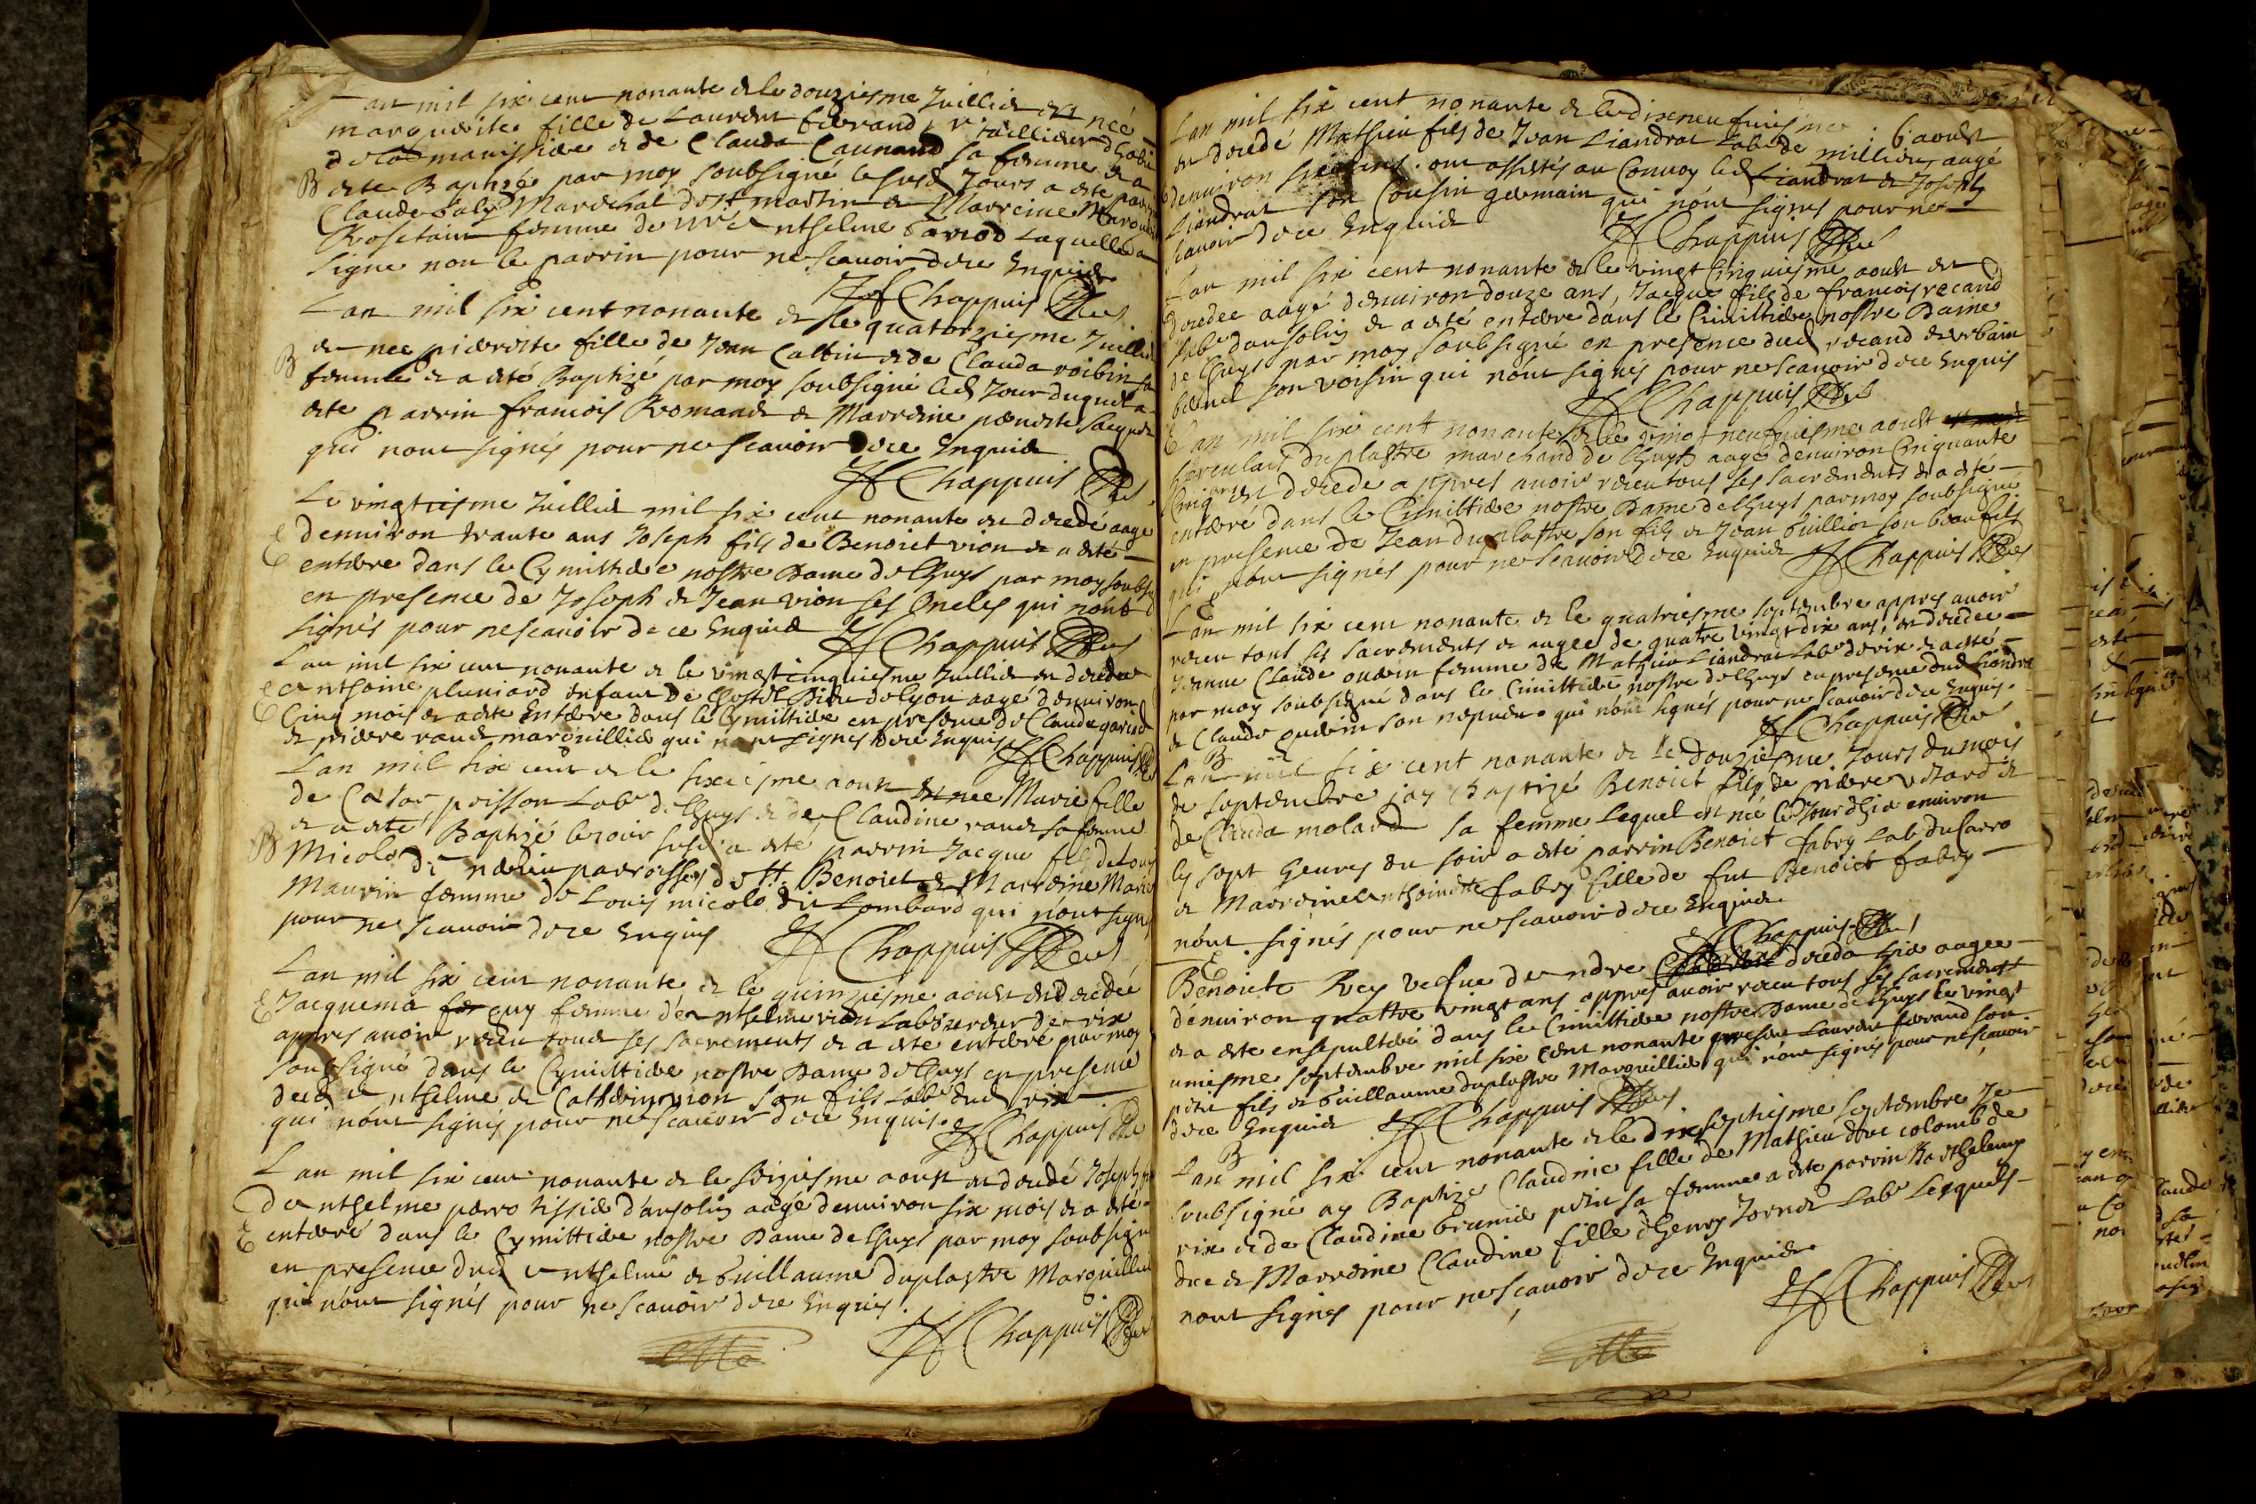 Lan mil six cent nonante & le douziesme Juillie est neé
marguerite fille de Laurent ferrand
de la manissiere & de Clauda Caunand sa femme & a
B este Baptizé par moy soubsigné le susd Jours a este parrin
Claude Mareschal de St martin & Marreine
femme de Mre Anthelme laquelle a
signe non le parrin pour ne scavoir de ce Enquis
Chappuis
Lan mil six cent nonante & le quatorziesme Juillie
B est nee pierrette fille de Jean Cattin & de Clauda roibin sa
femme & a esté Baptizé par moy soubsigné led Jour duquel a
este parrin francois Romand & Marreine pernette
qui nont signés pour ne scavoir de ce Enquis
Chappuis
Le vingtiesme Juillie mil six cent nonante est decedé aagé
E denviron trante ans Joseph fils de Benoict vion & a esté
enterre dans le Cymittiere nostre Dame de Lhuys par moy soubs
en presence de Joseph & Jean vion ses Oncles qui nont
signés pour ne scavoir de ce Enquis
Chappuis
Lan mil six cent nonante & le vingt cinquiesme Juillie est decede
E Anthoine pluniard enfant de Lhostel Dieu de Lyon aagé denviron
Cinq mois & a este Enterre dans le Cymittiere en presence de Claude
& pierre raud marguillie qui nont signes de ce Enquis
Chappuis
Lan mil six cent & le sixiesme aoust est nee Marie fille
de Cesar poisson Labr de Lhuys & de Claudine raude sa femme
B & a este Baptizé le soir susd a este parrin Jacque fils de Louys
Micolo de parroisse de St. Benoict & Marreine Marie
Mauvin femme de Louis micolo du Lombard qui nont signé
pour ne scavoir de ce Enquis
Chappuis
Lan mil six cent nonante & le quinziesme aoust est decedeé
E Jacquema guy femme danthelme vion Laboureur de rix
appres avoir receu tous ses sacrements & a este enterre par moy
soubsigné dans le Cymittiere nostre Dame de Lhuys en presence
dud anthelme & Catherin vion son fils Labr dud rix
qui nont signés pour ne scavoir de ce Enquis.
Chappuis
Lan mil six cent nonante & le seiziesme aoust est decedé Joseph
danthelme perro tissier dansolin aagé denviron six mois & a esté
E enterré dans le Cymittiere nostre Dame de Lhuys par moy soubsigné
en presence dud anthelme & Guillaume duplastre Marguillier
qui nont signés pour ne scavoir de ce Enquis.
Chappuis
Lan mil six cent nonante & le dixneufviesme aoust
est decedé Mathieu fils de Jean Liandrat Labr de millieu aagé
denviron six ans. ont assistés au Convoy led Liandrat & Joseph
Liandrat son Cousin germain qui nont signés pour ne
scavoir de ce Enquis
Chappuis
Lan mil six cent nonante & le vingt Cinquiesme aoust est
decedee aagé denviron douze ans, Jacque fils de francois recand
Labr dansolin & a esté enterre dans le Cimittiere nostre Dame
de Lhuys par moy soubsigné en presence dud recand & urbain
son voisin qui nont signés pour ne scavoir de ce Enquis
Chappuis
E Lan mil six cent nonante & le vingt neufviesme aoust
herculais duplastre marchand de Lhuys aagé denviron Cinquante
Cinq ans est decede appres avoir receu tous ses sacrements & a esté
enterré dans le Cimittiere nostre Dame de Lhuys par moy soubsigné
en presence de Jean duplastre son fils & Jean Guillier son beau fils
qui nont signés pour ne scavoir de ce Enquis
Chappuis
E
Lan mil six cent nonante & le quatriesme septembre appres avoir
receu tous ses sacrements & aagee de quatre vingt dix ans, est decedee
Jeanne Claude ouvrin femme de Mathieu Liandrat Labr de rix & a esté
par moy soubsigné dans le Cimittiere nostre de Lhuys en presence dud Liandra
& Claude ouvrin son nepveu qui nont signés pour ne scavoir de ce Enquis.
Chappuis
B
Lan mil six cent nonante & le Douziesme Jours du mois
de septembre jay Baptizé Benoict fils de pierre &
de Clauda molard sa femme Lequel est né le Jourdhier environ
les sept heures du soir a esté parrin Benoict fabry Lab du sarro
& Marreine Anthoinette fabry fille de fut Benoict fabry
nont signés pour ne scavoir de ce Enquis
Chappuis
E
Benoicte Rey vefve dandre deceda hier aagee
denviron quattre vingt ans appres avoir receu tous ses sacrements
& a este ensepulteré dans le Cimittiere nostre Dame de Lhuys le vingt
uniesme septembre mil six cent nonante presens Laurent ferrand son
petit fils & Guillaume duplastre Marguillier qui nont signés pour ne scavoir
de ce Enquis
Chappuis
B
Lan mil six cent nonante & le dixseptiesme septembre Je
soubsigné ay Baptize Claudine fille de Mathieu duc colomb de
rix & de Claudine sa femme a este parrin Barthelemy
duc & Marreine Claudine fille dhenry Labr Lesquels
nont signés pour ne scavoir de ce Enquis
Chappuis